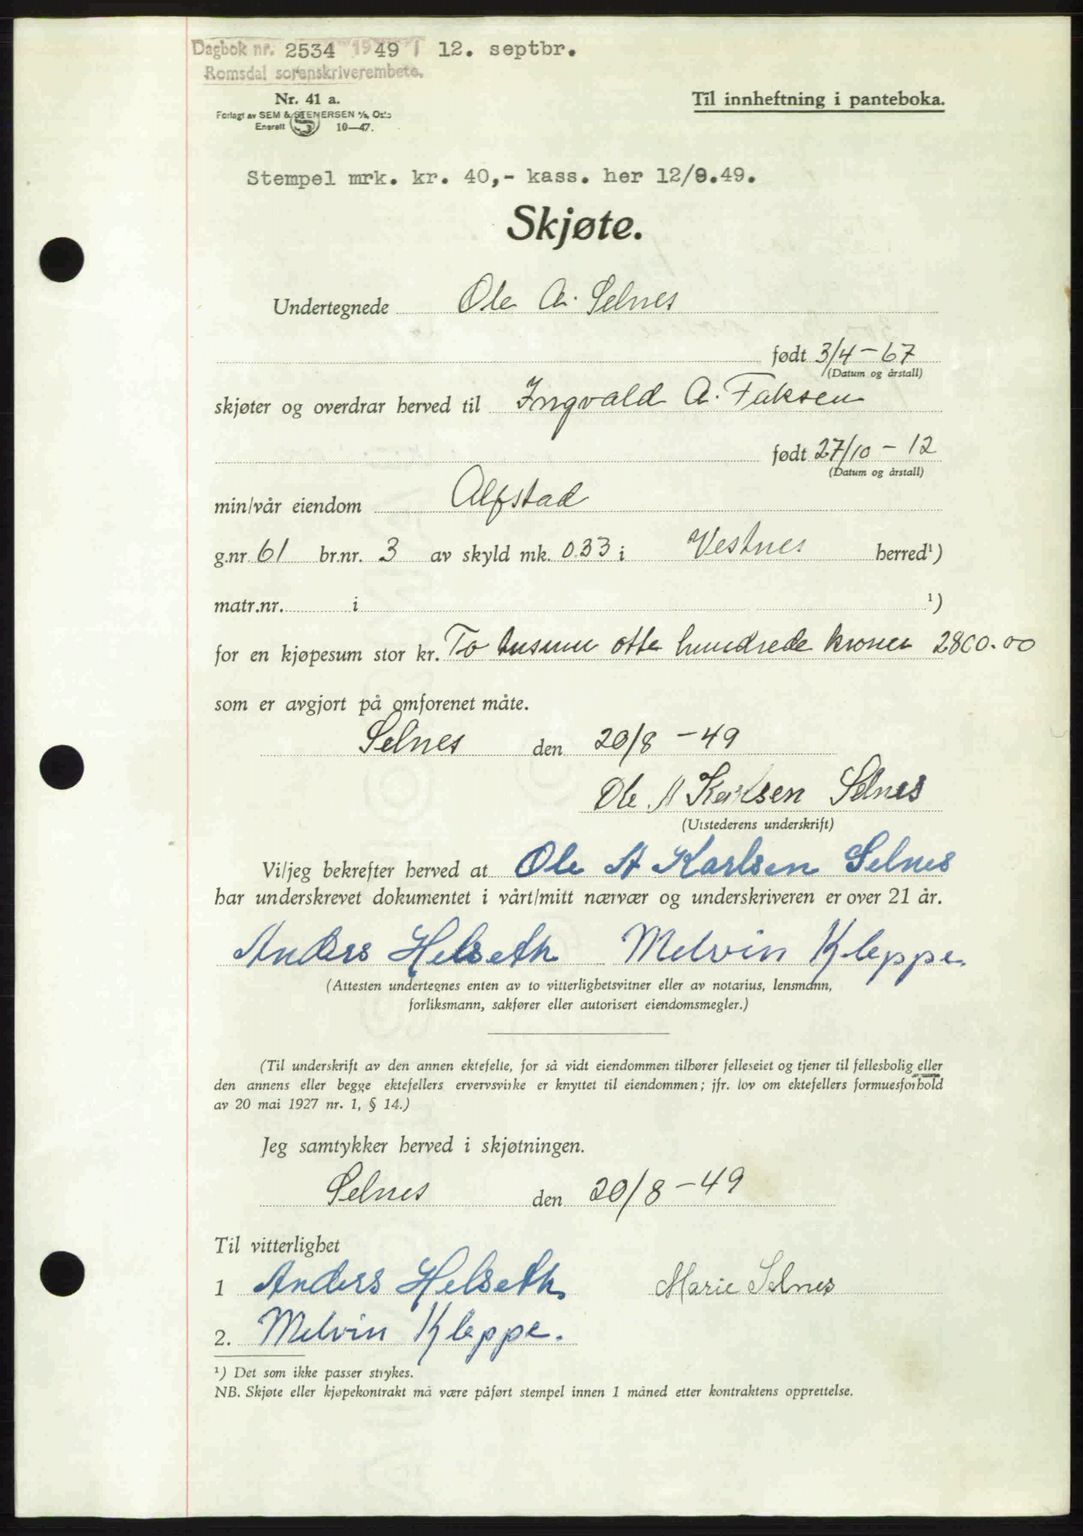 Dagbok nr. 2534 1949 12. septbr.
Romsdal sorenskriverembete.
Nr. 41 a.
Til innheftning i panteboka.
Forlagt av SEM & STENERSEN A/S, Oslo
Enerett 10—47.
Stempel mrk. kr. 40,- kass. her 12/9.49.
Skjøte.
Undertegnede Ole A. Selnes
født 3/4-67
(Datum og årstall)
skjøter og overdrar herved til Ingvald A. Faksen
født 27/10 - 12
(Datum og årstall)
min/vår eiendom Alfstad
g.nr. 61 br.nr. 3 av skyld mk. 0.33 i Vestnes herred¹)
matr.nr. i ¹)
for en kjøpesum stor kr. To tusenn otte hundrede kroner 2800.00
som er avgjort på omforenet måte.
Selnes den 20/8 - 49
Ole A Karlsen Selnes
(Utstederens underskrift)
Vi/jeg bekrefter herved at Ole A Karlsen Selnes
har underskrevet dokumentet i vårt/mitt nærvær og underskriveren er over 21 år.
Anders Helseth Melvin Kleppe.
(Attesten undertegnes enten av to vitterlighetsvitner eller av notarius, lensmann,
forliksmann, sakfører eller autorisert eiendomsmegler.)
(Til underskrift av den annen ektefelle, for så vidt eiendommen tilhører felleseiet og tjener til fellesbolig eller
den annens eller begge ektefellers ervervsvirke er knyttet til eiendommen; jfr. lov om ektefellers formuesforhold
av 20 mai 1927 nr. 1, § 14.)
Jeg samtykker herved i skjøtningen.
Selnes den 20/8 - 49
Til vitterlighet
1 Anders Helseth. Marie Selnes
2. Melvin Kleppe.
¹) Det som ikke passer strykes.
NB. Skjøte eller kjøpekontrakt må være påført stempel innen 1 måned etter kontraktens opprettelse.